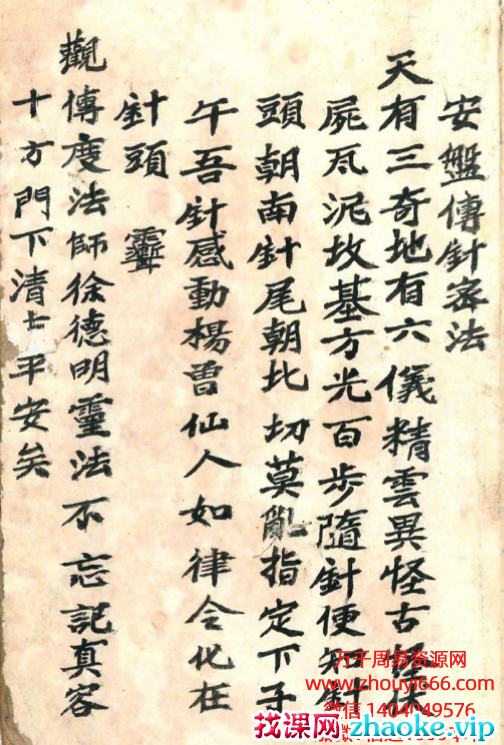 安盤傳針宻法
天有三奇地有六儀精雲異怪古
屍瓦泥坟基方光百步隨針便知針
頭朝南針尾朝北切莫亂指定下子
午吾針感動楊曾仙人如律令化在
針頭
觀傳度法師徐德明靈法不忘記真容
十方門下清平安矣
周易资源网
www.zhouyi666.com
微信1404049576
找课网zhaoke.vip